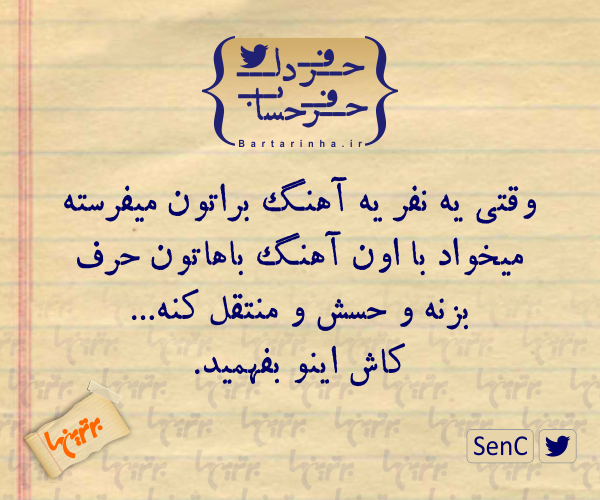 حرف دل
حرف حساب
Bartarinha.ir
وقتی یه نفر یه آهنگ براتون میفرسته
میخواد با اون آهنگ باهاتون حرف
بزنه و حسش و منتقل کنه...
کاش اینو بفهمید.
برترین‌ها
SenC